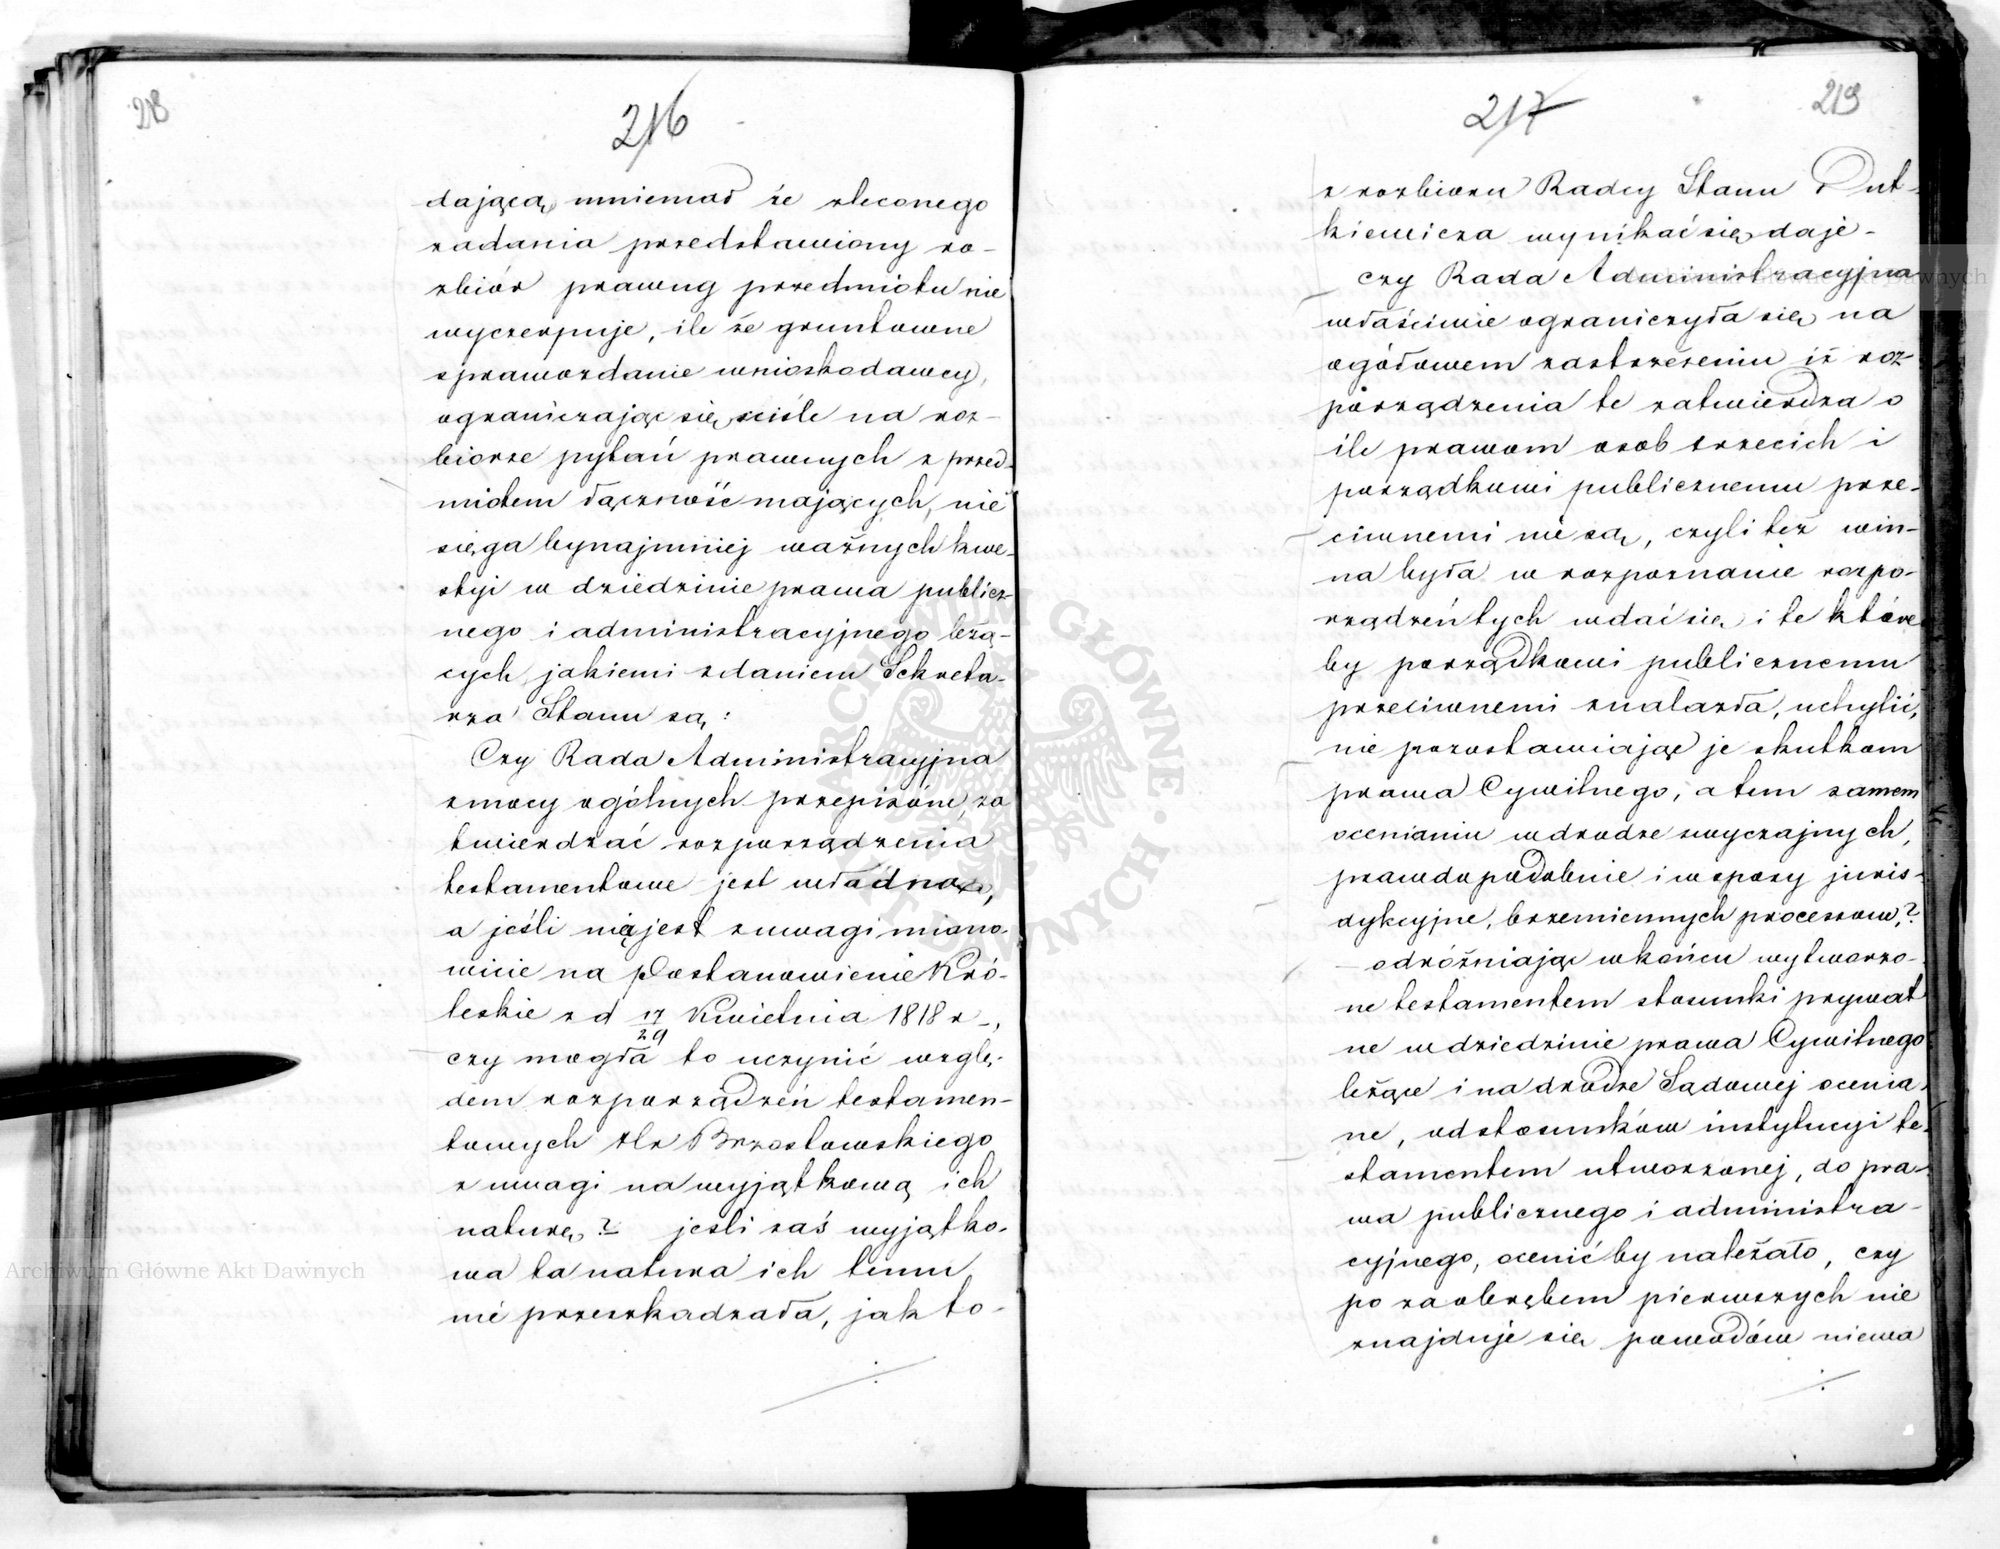 218
216
dającą, mniemał że zleconego
zadania przedstawiony ro-
zbiór prawny przedmiotu nie
wyczerpuje, ile że gruntowne
sprawozdanie wnioskodawcy,
ograniczając się ściśle na roz-
biorze pytań prawnych z przed-
miotem łączność mających, nie
sięga bynajmniej ważnych kwe-
styi w dziedzinie prawa publicz-
nego i administracyjnego leżą-
cych, jakiemi zdaniem Sekreta-
rza Stanu są:
Czy Rada Administracyjna
z mocy ogólnych przepisów, za
twierdzać rozporządzenia
testamentowe jest władną,
a jeśli nie jest z uwagi miano-
wicie na Postanowienie Kró-
leskie z d 17/29 Kwietnia 1818 r -,
czy mogła to uczynić wzglę-
dem rozporządzeń testamen-
towych Brzostowskiego
z uwagi na wyjątkową ich
naturę? jeśli zaś wyjątko-
wa ta natura ich temu
nie przeszkadzała, jak to-
./.
217
219
z rozbioru Radcy Stanu Dut-
kiewicza wynikać się daje -
czy Rada Administracyjna
właściwie ograniczyła się na
ogółowem zastrzeżeniu iż roz-
porządzenia te zatwierdza o
ile prawom osób trzecich i
porządkowi publicznemu prze-
ciwnemi nie są, czyli też win-
na była w rozpoznanie rozpo-
rządzeń tych wdać się i te które
by porządkowi publicznemu
przeciwnemi znalazła, uchylić,
nie pozostawiając je skutkom
prawa Cywilnego, a tem samem
ocenianiu w drodze zwyczajnych,
prawdopodobnie i w spory juris-
dykcyjne, brzemiennych processów?
- odróżniając w końcu wytworzo-
ne testamentem stosunki prywat
ne w dziedzinie prawa Cywilnego
leżące i na drodze Sądowej ocenia-
ne, od stosunków instytucyi te-
stamentem utworzonej, do pra-
wa publicznego i administra-
cyjnego, ocenić by należało, czy
po za obrębem pierwszych nie
znajduje się powodów niewa
./.
Archiwum Główne Akt Dawnych
Archiwum Główne Akt Dawnych
ARCHIWUM GŁÓWNE AKT DAWNYCH